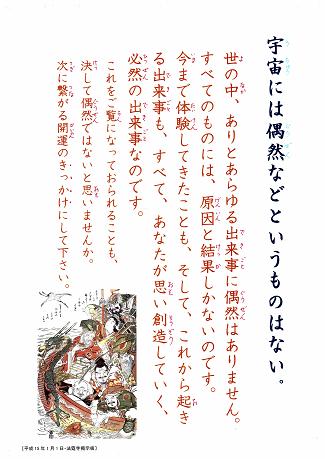 宇宙には偶然などというものはない。
世の中、ありとあらゆる出来事に偶然はありません。
すべてのものには、原因と結果しかないのです。
今まで体験してきたことも、そして、これから起き
る出来事も、すべて、あなたが思い創造していく、
必然の出来事なのです。
これをご覧になっておられることも、
決して偶然ではないと思いませんか。
次に繋がる開運のきっかけにして下さい。